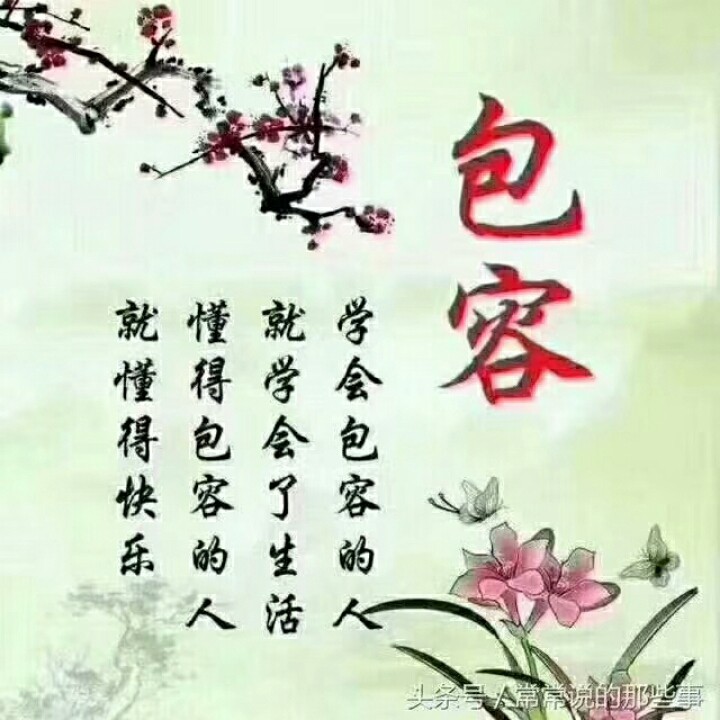 包容
学会包容的人
就学会了生活
懂得包容的人
就懂得快乐
头条号/常常说的那些事